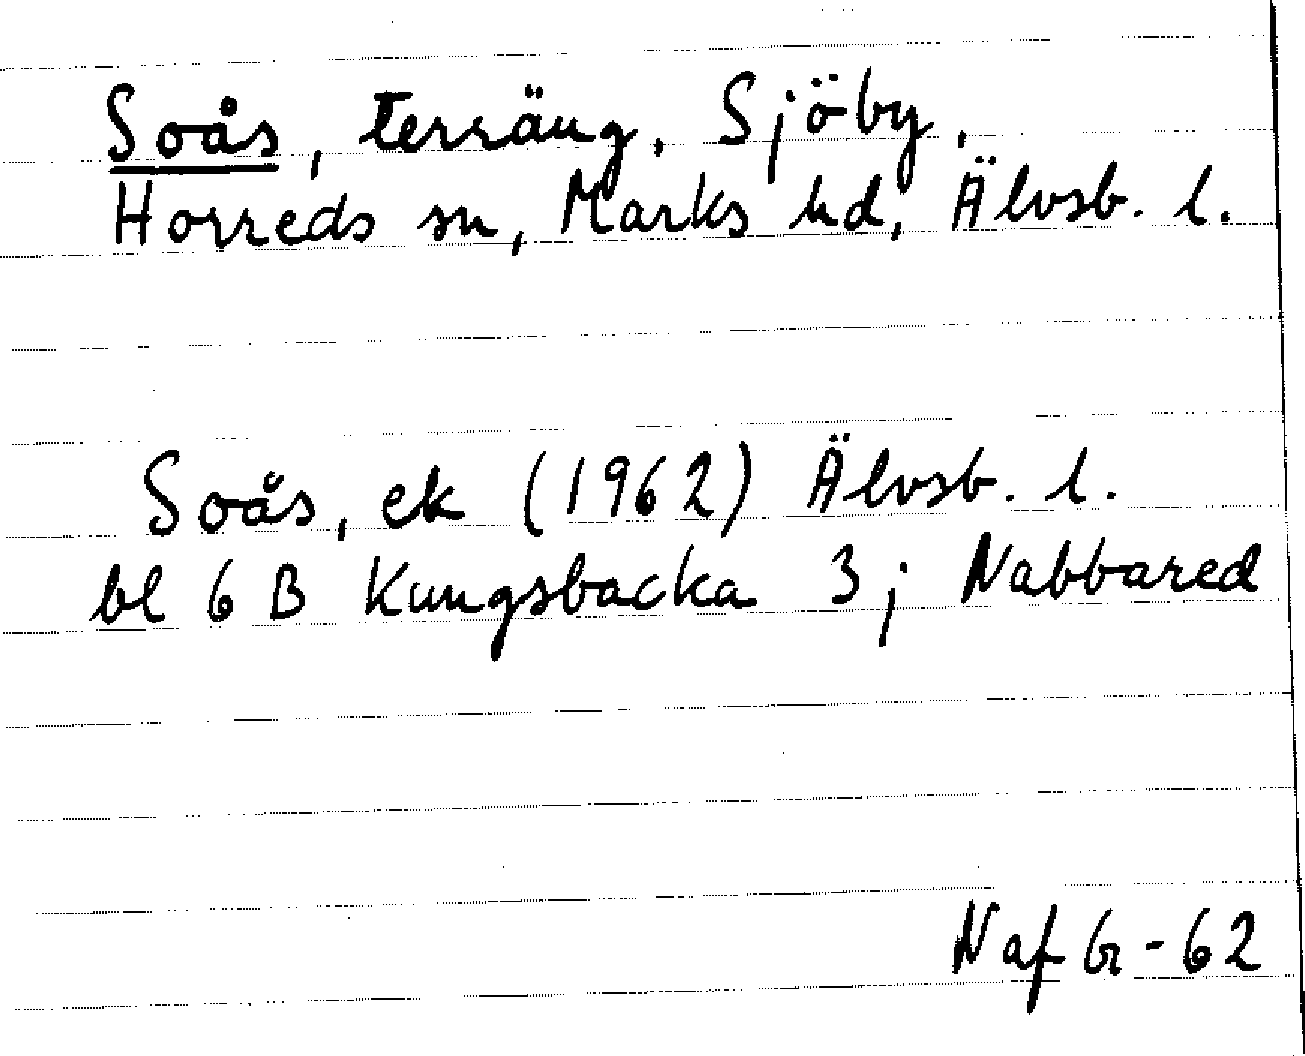 Soås, terräng, Sjöby,
Horreds sn, Marks hd, Älvsb. l.
Soås, ek (1962) Älvsb. l.
bl 6 B Kungsbacka 3j Nabbared
Naf G-62